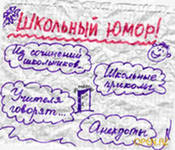 ШКОЛЬНЫЙ ЮМОР!
Из сочинений
школьников...
Школьные
приколы
Учителя
говорят...
Анекдоты